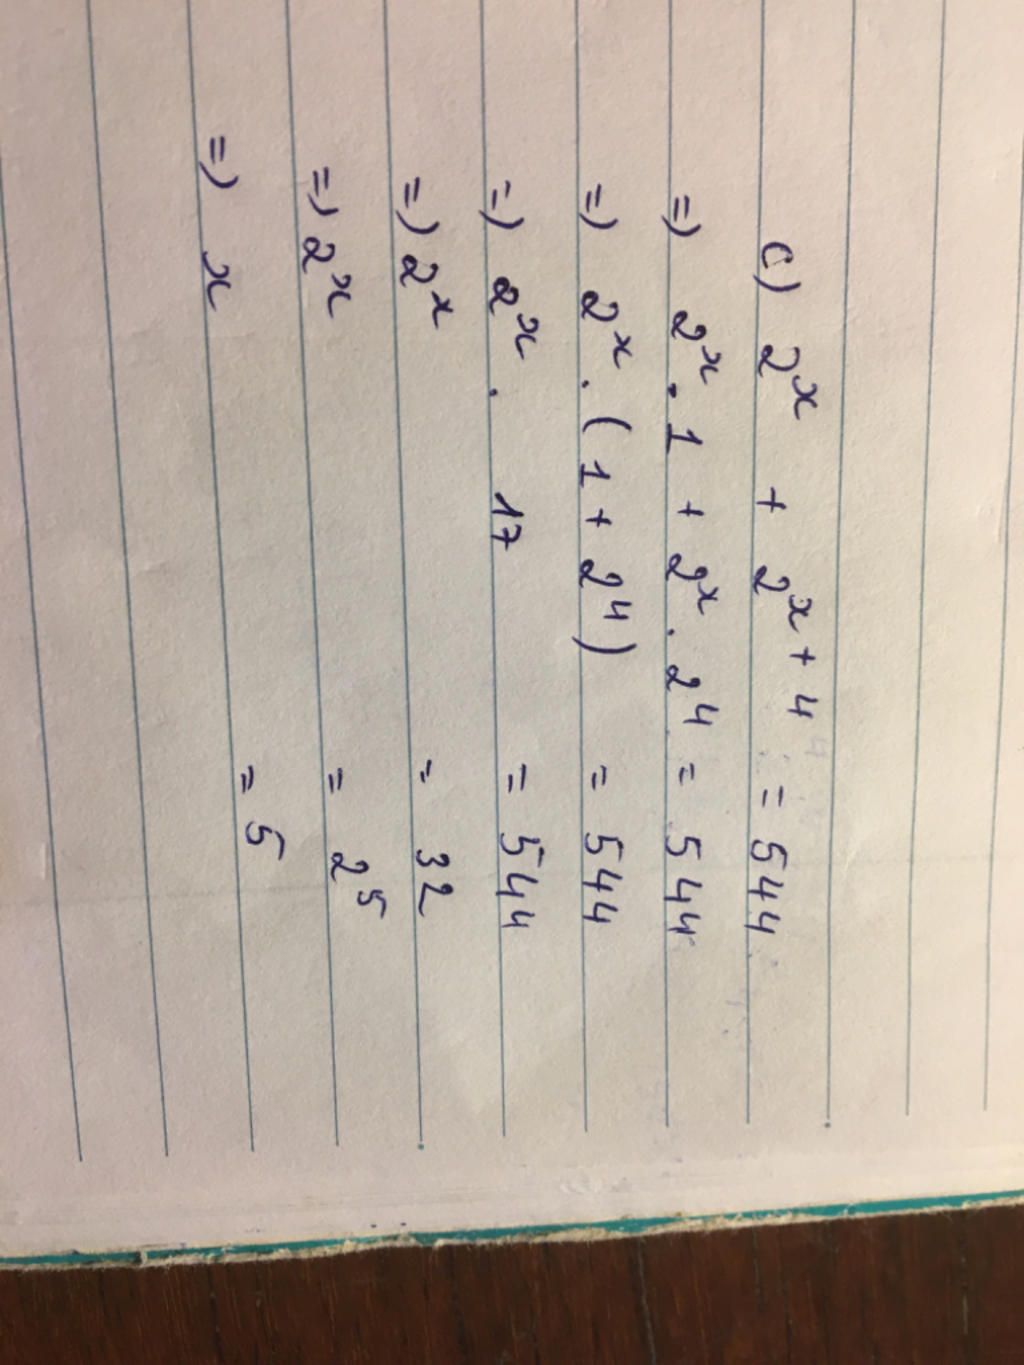 c) 2^x + 2^{x+4} = 544
=) 2^x . 1 + 2^x . 2^4 = 544
=) 2^x . (1 + 2^4) = 544
=) 2^x . 17 = 544
=) 2^x = 32
=) 2^x = 2^5
=) x = 5